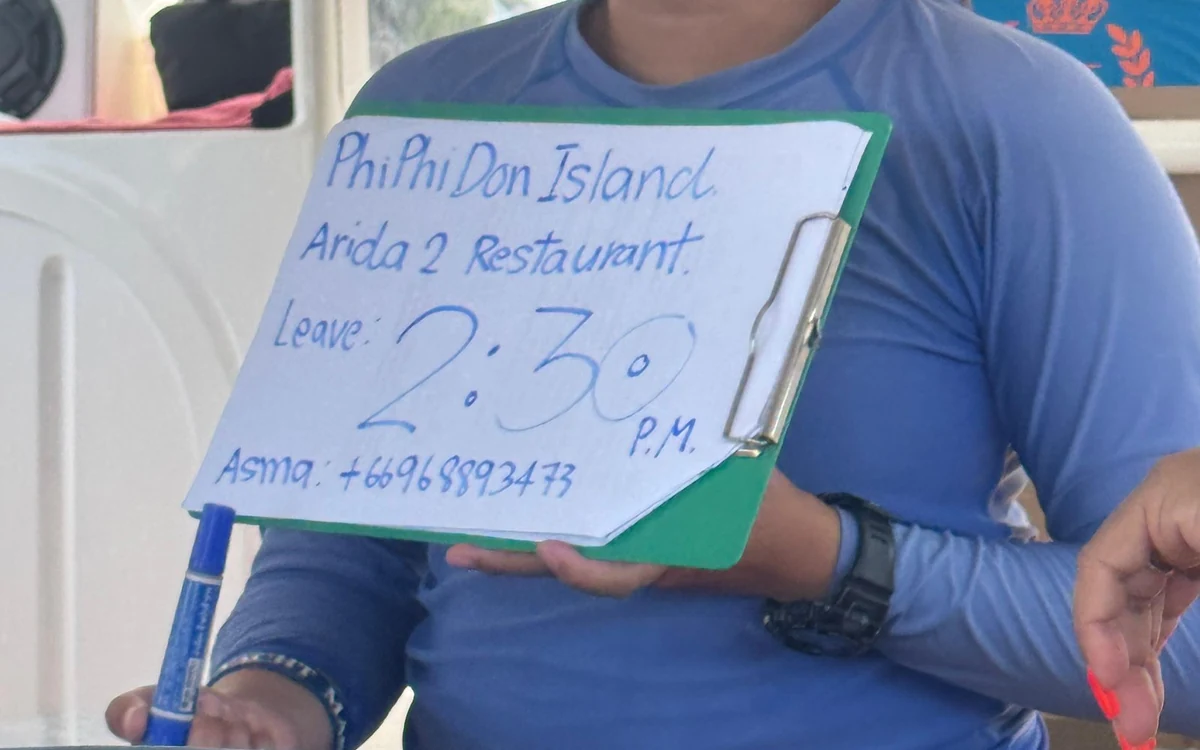 PhiPhi Don Island.
Arida 2 Restaurant.
Leave: 2:30
P.M.
Asma: +66968893473